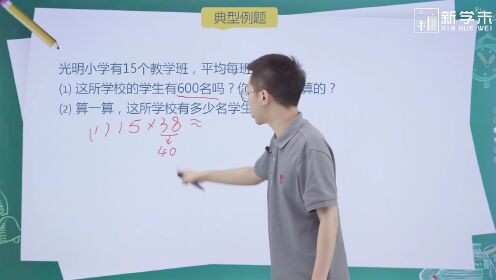 典型例题
新学未
XIN XUE WEI
光明小学有15个教学班，平均每班
(1) 这所学校的学生有600名吗？你 算的？
(2) 算一算，这所学校有多少名学生
(1) 15×38≈
40